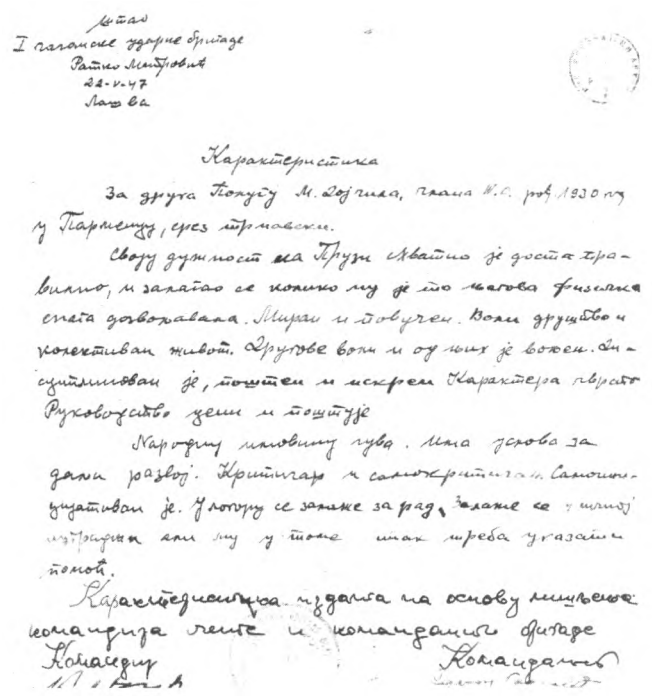 Штаб
I чачанске ударне бригаде
Ратко Митровић
22-V-47
Лашва
Карактеристика
За друга Попусу М. Дојчила, члана Н.О. рођ. 1930 год
у Парменцу, срез трнавски.
Своју дужност на Прузи схватио је доста пра-
вилно, и залагао се колико му је то његова физичка
снага дозвољавала. Миран и повучен. Воли друштво и
колективан живот. Другове воли и од њих је вољен. Ди-
сциплинован је, поштен и искрен Карактера чврстог
Руководство цени и поштује
Народну имовину чува. Има услова за
даљи развој. Критичан и самокритичан. Самоини-
цијативан је. У логору се залаже за рад, Залаже се у
изградњи али му у томе ипак треба указати
помоћ.
Карактеристика издата на основу мишљења
командира чете и команданта бригаде
Командир Командант